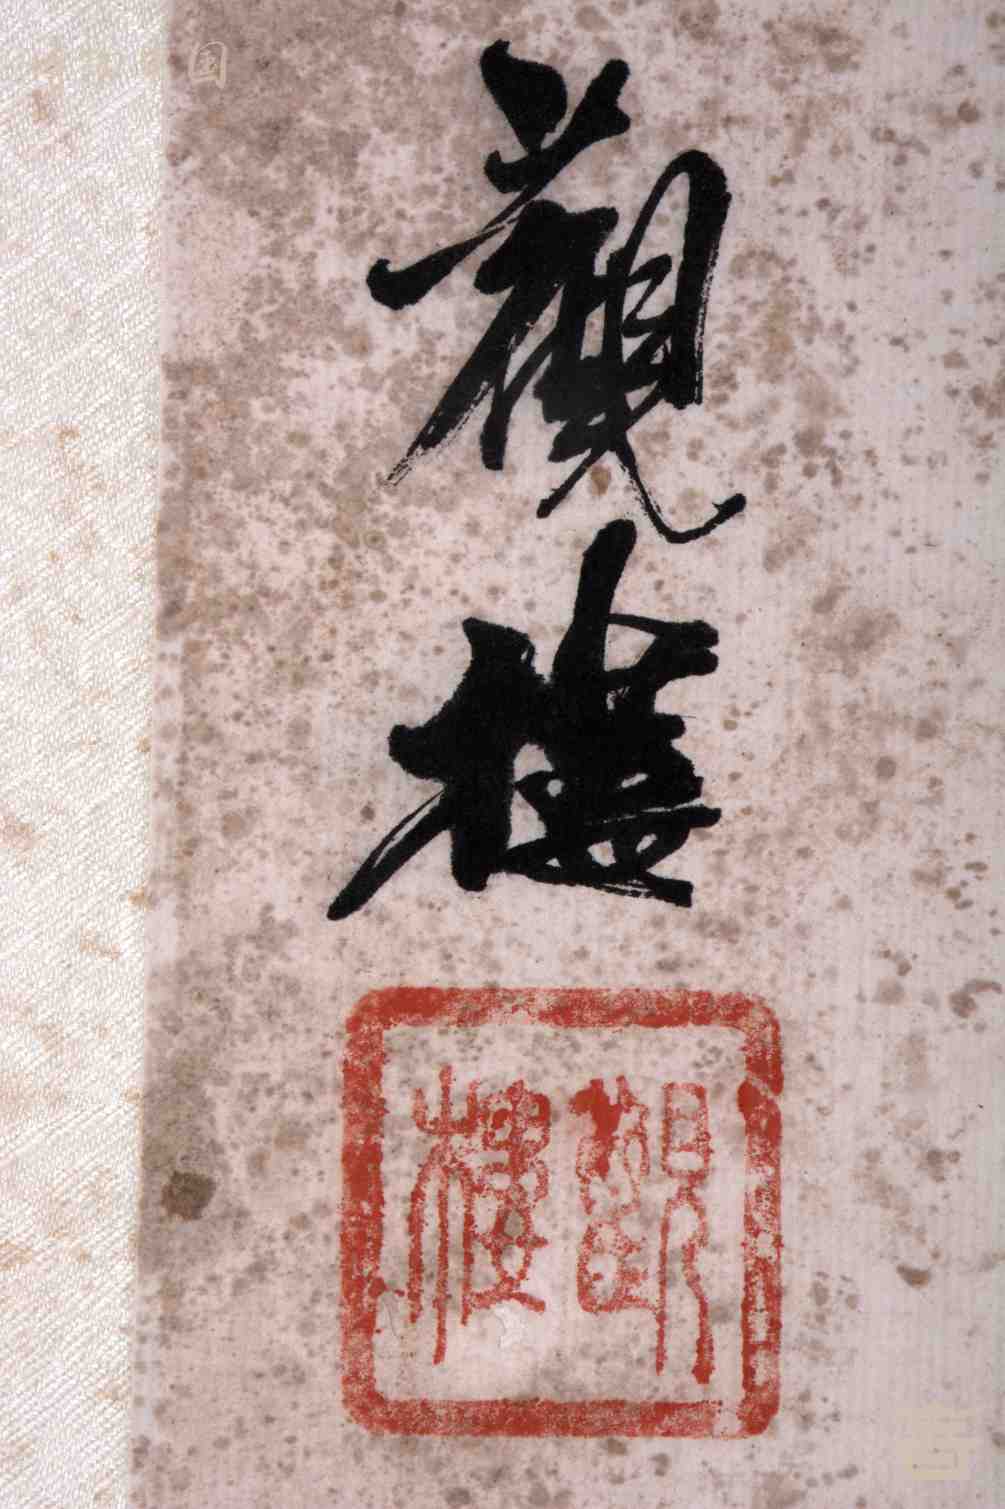 觀樓
觀樓
国